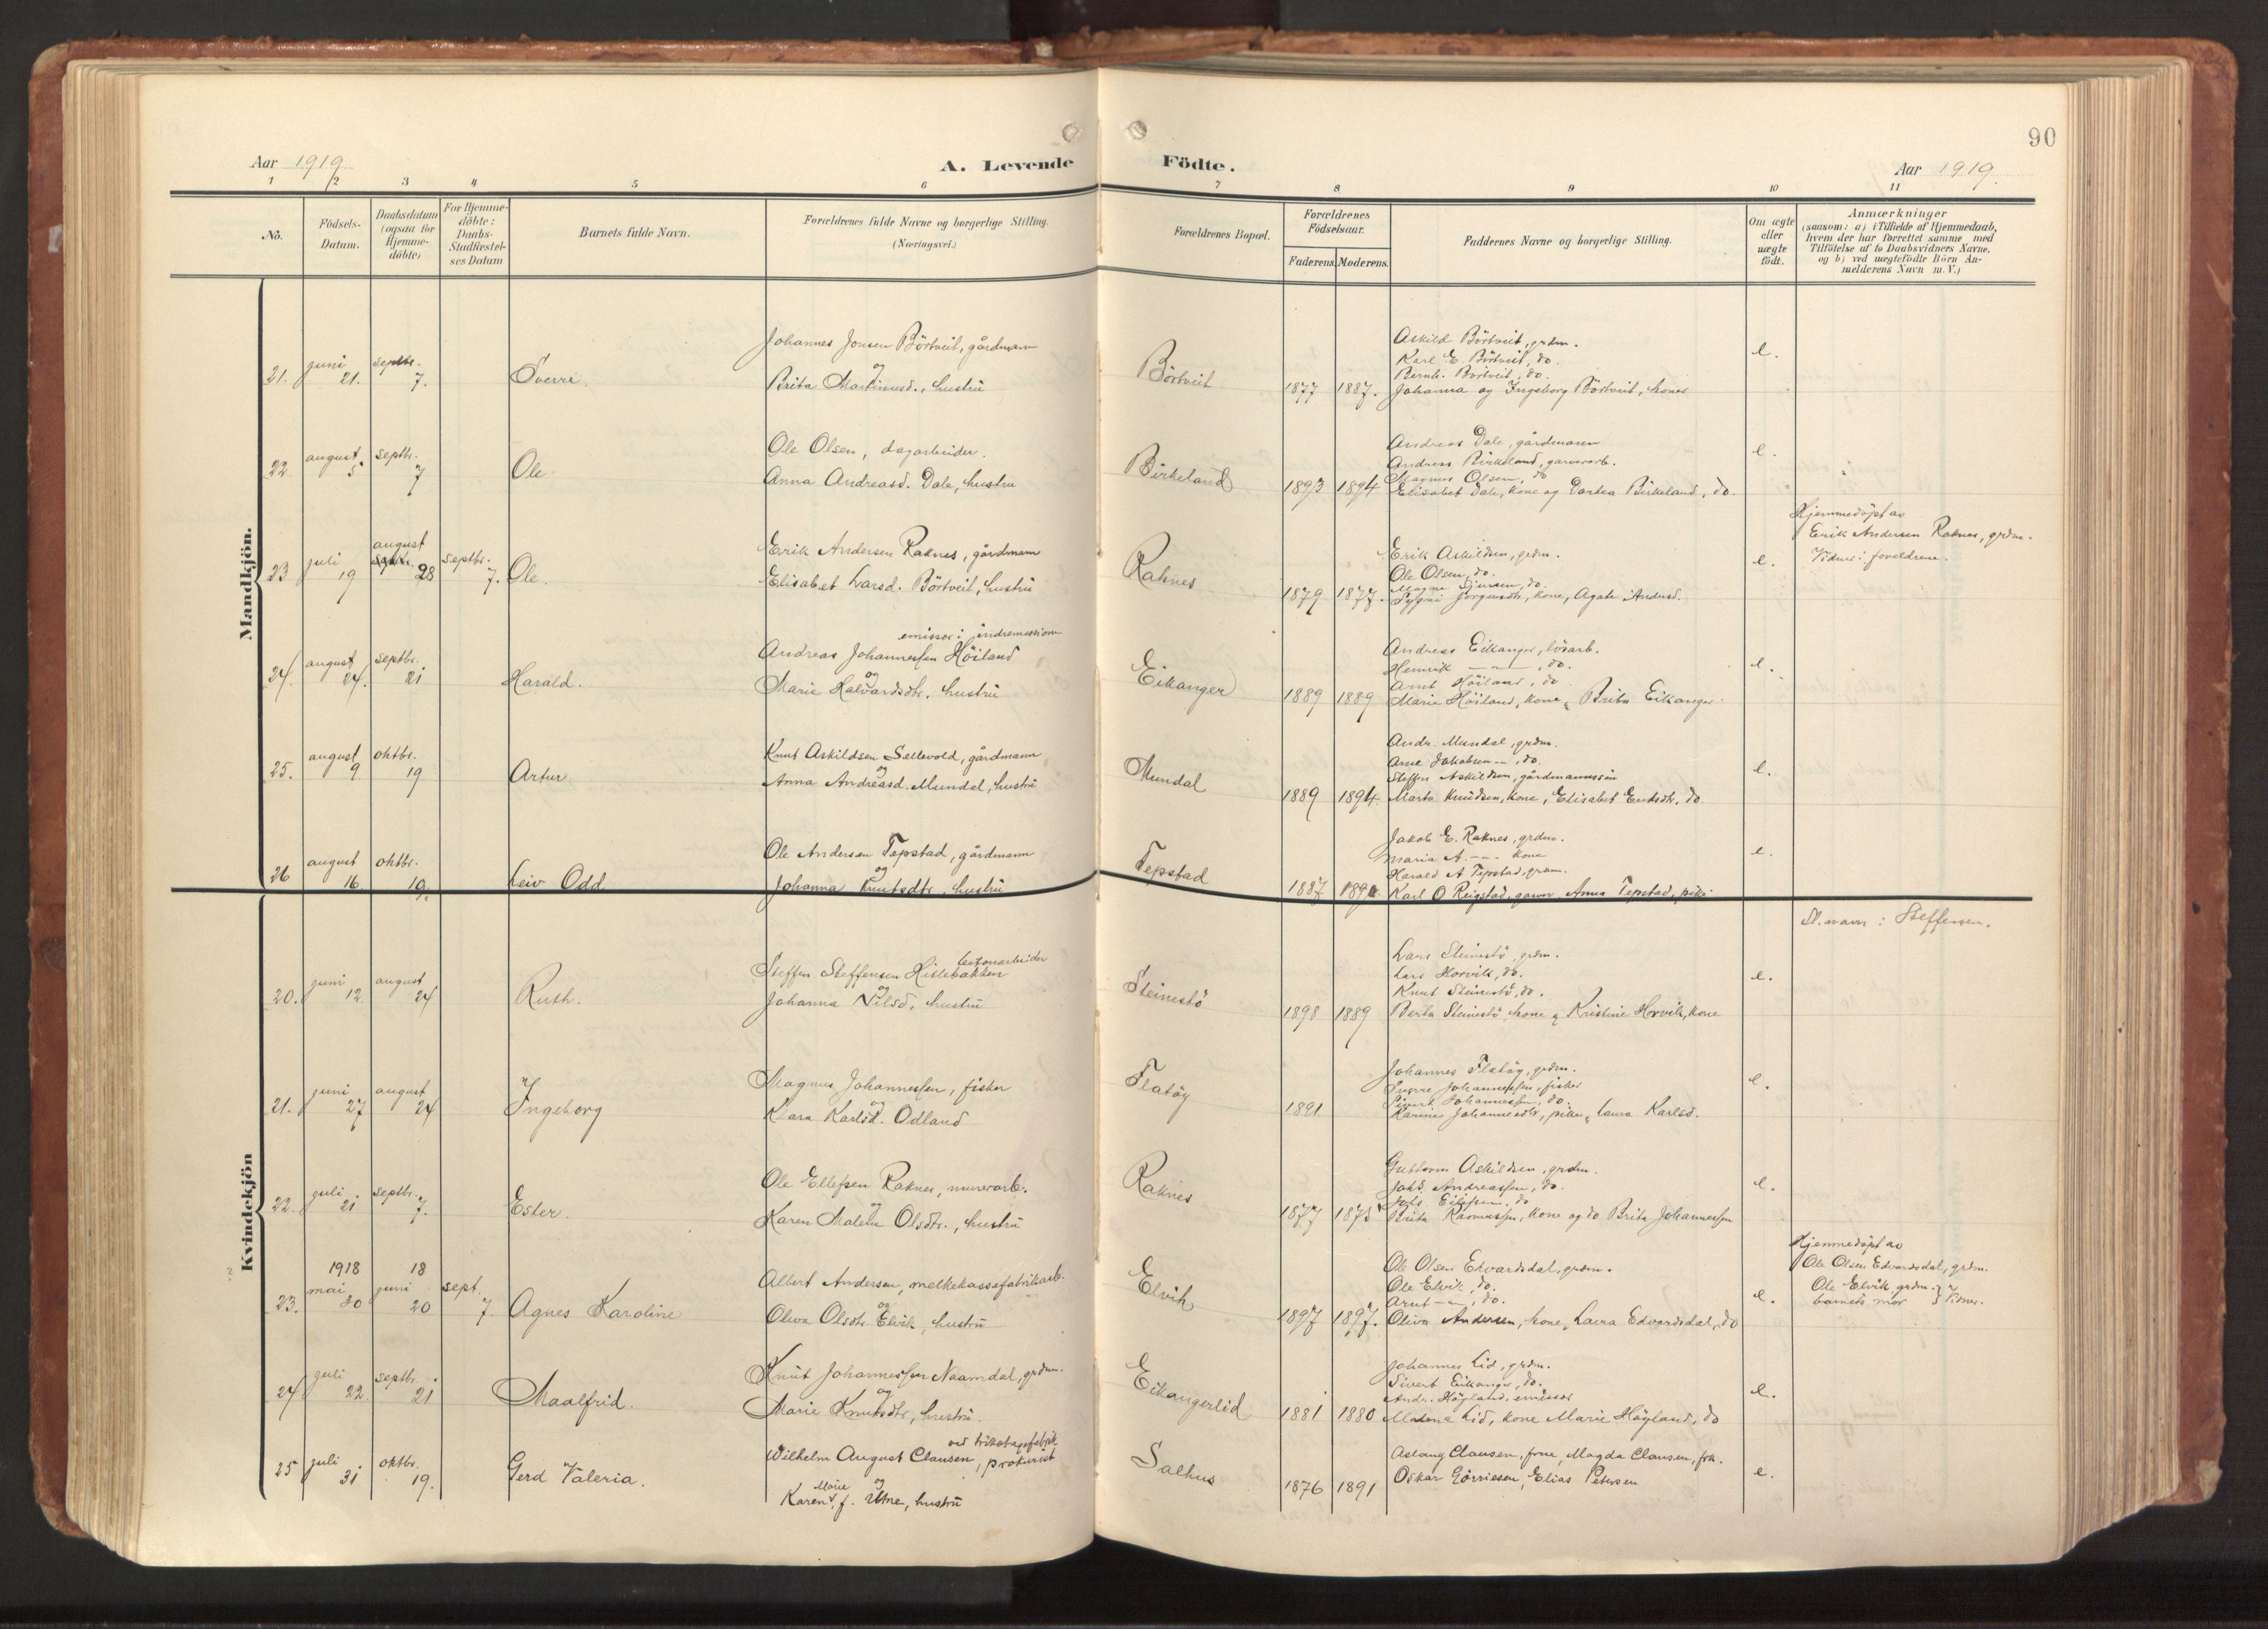 90
Aar 1919.
A. Levende
Födte.
Aar 1919.
1 2 3 4 5 6 7 8 9 10 11
No.
Födsels-
Datum.
Daabsdatum
(ogsaa for
Hjemme-
döbte)
For Hjemme-
döbte:
Daabs-
Stadfæstel-
ses Datum
Barnets fulde Navn.
Forældrenes fulde Navne og borgerlige Stilling.
(Næringsvei.)
Forældrenes Bopæl.
Forældrenes
Födselsaar.
Faderens. Moderens.
Faddernes Navne og borgerlige Stilling.
Om ægte
eller
uægte
födt.
Anmærkninger
(saasom: a) i Tilfælde af Hjemmedaab,
hvem der har forrettet samme med
Tilföielse af to Daabsvidners Navne,
og b) ved uægtefödte Börn An-
melderens Navn m. V.)
Mandkjön.
21. juni 21. septbr. 7. Sverri.
Johannes Jonsen Börtveit, gårdmann
og
Brita Martinusd., hustru
Börtveit 1877 1887.
Askild Börtveit, grdm.
Karl E. Börtveit, do.
Bernh. Börtveit, do.
Johanna og Ingeborg Börtveit, koner
e.
22. august 5 septbr. 7 Ole
Ole Olsen, dagarbeider.
Anna Andreasd. Dale, hustru
Birkeland 1893 1894
Andreas Dale, gårdmann
Andreas Birkeland, garverarb.
Magnus Olsen, do
Elisabet Dale, kone og Dortea Birkeland, do.
e.
23 juli 19 august 28 septbr. 7. Ole.
Erik Andersen Raknes, gårdmann
Elisabet Larsd. Börtveit, hustru
Raknes 1879 1877.
Erik Askildsen, grdm.
Ole Olsen, do.
Magne Sjursen, do.
Jorgensdtr, kone, Agate Andersd.
e.
Hjemmedöpt av
Erik Andersen Raknes, grdm.
Vidner: foreldrene.
24. august 24. septbr. 21 Harald.
emissær i indremissionen
Andreas Johannessen Höiland
og
Marie Halvardsdtr. hustru
Eikanger 1889 1889
Andreas Eikanger, lösarb.
Henrik — " —, do.
Arnt Höiland, do
Marie Höiland, kone, Brita Eikanger.
e.
25. august 9 oktbr. 19 Artur
Knut Askildsen Sellevold, gårdmann
og
Anna Andreasd. Mundal, hustru
Mundal 1889 1894
Andr. Mundal, grdm.
Arne Jakobsen — , do.
Steffen Askildsen, gårdmannssön
Marta Knudsen, kone, Elisabet Endsdtr, do.
e.
26 august 16. oktbr. 19. Leiv Odd
Ole Andersen Tepstad, gårdmann
og
Johanna Knutsdtr, hustru
Tepstad 1887
Jakob E. Raknes, grdm.
Maria A. — " — kone
Harald A Tepstad, grdm.
Karl O Reigstad, Anna Tepstad, pike
e.
Kvindekjön
20. juni 12. august 24 Ruth.
betonarbeider
Steffen Steffensen Hislebakken
og
Johanna Nilsd, hustru
Steinestö 1898 1889
Lars Steinestö, grdm.
Lars Horvik, do.
Knut Steinestö, do.
Berta Steinestö kone, Kristine Horvik, kone
e.
Sl.navn: Steffensen.
21. juni 27 august 24 Ingeborg
Magnus Johannessen, fisker
og
Klara Karlsd. Odland
Flatöy 1891
Johannes Flatöy, grdm.
Sverre Johannessen, fisker
Sivert Johannessen, do.
Karine Johannesdtr, pike, Laura Karlsd.
e.
22. juli 21 septbr. 7. Ester.
Ole Ellefsen Raknes, murerarb.
og
Karen Malene Olsdtr., hustru
Raknes 1877 1875
Guttorm Askildsen, grdm.
Johs. Andreassen, do.
Johs. Ellefsen, do
Brita Rasmussen, kone og do Brita Johannessen
e.
23. 1918 mai 30 18 juni 20 sept. 7. Agnes Karoline
Albert Andersen, melkekassefabrikarb.
og
Oliva Olsdtr Elvik, hustru
Elvik 1897 1897.
Ole Olsen Edvardsdal, grdm.
Ole Elvik, do.
Arnt — " —, do.
Oliva Andersen, kone, Laura Edvardsdal, do
e.
Hjemmedöpt av
Ole Olsen Edvardsdal, grdm.
Ole Elvik, grdm. } Vidner.
barnets mor
24 juli 22. septbr. 21 Maalfrid.
Knut Johannessen Naamdal, grdm.
og
Marie Knutsdtr, hustru.
Eikangerlid 1881 1880
Johannes Lid, grdm.
Sivert Eikanger, do.
Andr. Höyland, emissær
Malena Lid, kone Marie Höyland, do
e.
25 juli 31 oktbr. 19. Gerd Valeria.
ved trikotagefabrik
Wilhelm August Clausen, prokurist
og
Karen Marie f. Utne, hustru
Salhus 1876 1891
Aslaug Clausen, frue, Magda Clausen, frk.
Oskar Görriesen, Elias Petersen
e.